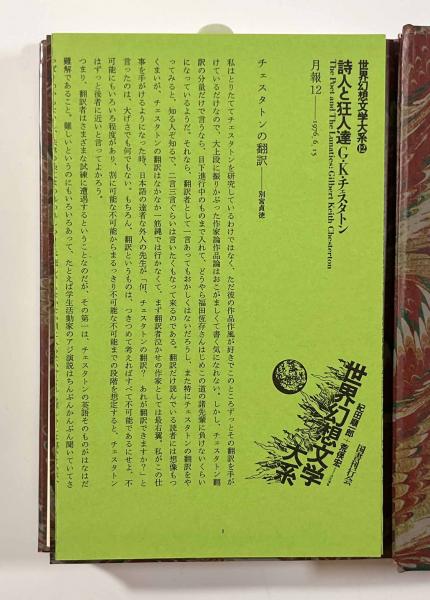 世界幻想文学大系12
詩人と狂人達 G・K・チェスタトン
The Poet and The Lunatics : Gilbert Keith Chesterton
月報12——1976.6.15
世界幻想文学大系
紀田順一郎
荒俣宏
国書刊行会
チェスタトンの翻訳——別宮貞徳
私はとりたててチェスタトンを研究しているわけではなく、ただ彼の作品作風が好きでこのところずっとその翻訳を手が
けているだけなので、大上段に振りかぶった作家論作品論はおこがましくて書く気になれない。しかし、チェスタトン翻
訳の分量だけで言うなら、目下進行中のものまで入れて、どうやら福田恆存さんはじめこの道の諸先輩に負けないくらい
になっているようだ。それなら、翻訳者として一言あってもおかしくはないだろうし、また特にチェスタトンの翻訳をや
ってみると、知る人ぞ知るで、二言三言ぐらいは言いたくもなって来るのである。翻訳だけ読んでいる読者には想像もつ
くまいが、チェスタトンの翻訳はなかなか一筋縄では行かなくて、まず翻訳者泣かせの作家としては最右翼。私がこの仕
事を手がけるようになった時、日本語の達者な外人の先生が「何、チェスタトンの翻訳？　あれが翻訳できますか？」と
言ったのは、大げさでも何でもない。もちろん、翻訳というものは、つきつめて考えればすべて不可能であるにせよ、不
可能にもいろいろ程度があり、割に可能な不可能からまるっきり不可能な不可能までの段階を想定すると、チェスタトン
はずっと後者に近いと言ってよかろう。
つまり、翻訳者はさまざまな試練に遭遇するということなのだが、その第一は、チェスタトンの英語そのものがはなはだ
難解であること。難しいというのにもいろいろあって、たとえば学生活動家のアジ演説はちんぷんかんぷん聞いていてさ
1